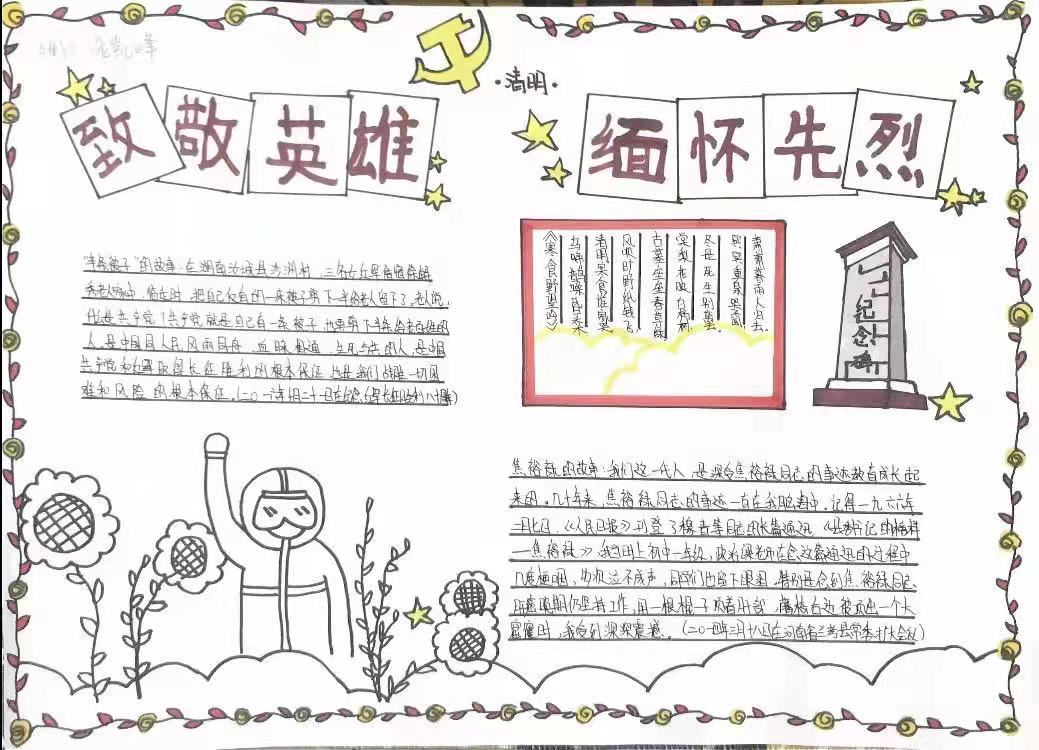 ·清明·
致敬英雄
缅怀先烈
"半条被子"的故事:在湖南汝城县沙洲村,三名女红军借宿徐解
秀老人家中,临走时,把自己仅有的一床被子剪下一半给老人留下了。老人说,
什么是共产党?共产党就是自己有一条被子,也要剪下半条给老百姓的
人。是中国同人民风雨同舟、血脉相通、生死与共的人,是中国
共产党和红军取得长征胜利的根本保证,也是我们战胜一切困
难和风险的根本保证。
萧萧暮雨人归去。
冥冥重泉哭不闻,
尽是死生别离
棠梨花映白杨树,
古墓垒垒春草绿。
风吹旷野纸钱飞,
清明寒食谁家哭。
乌啼鹊噪昏乔木,
《寒食野望吟》
纪念碑
焦裕禄的故事:我们这一代人,是深受焦裕禄同志的事迹教育成长起
来的。几十年来,焦裕禄同志的事迹一直在我脑海中。记得一九六六年
二月七日,《人民日报》刊登了穆青等同志的长篇通讯《县委书记的榜样
—焦裕禄》,我当时上初中一年级,政治课老师在念这篇通讯的过程中
几度哽咽,多次泣不成声,同学们也流下眼泪。特别是念到焦裕禄同志
肝癌晚期仍坚持工作,用一根棍子顶着肝部,藤椅右边被顶出一个大
窟窿时,我受到深深震撼。(二〇一四年三月十八日在河南省兰考县常委扩大会议)